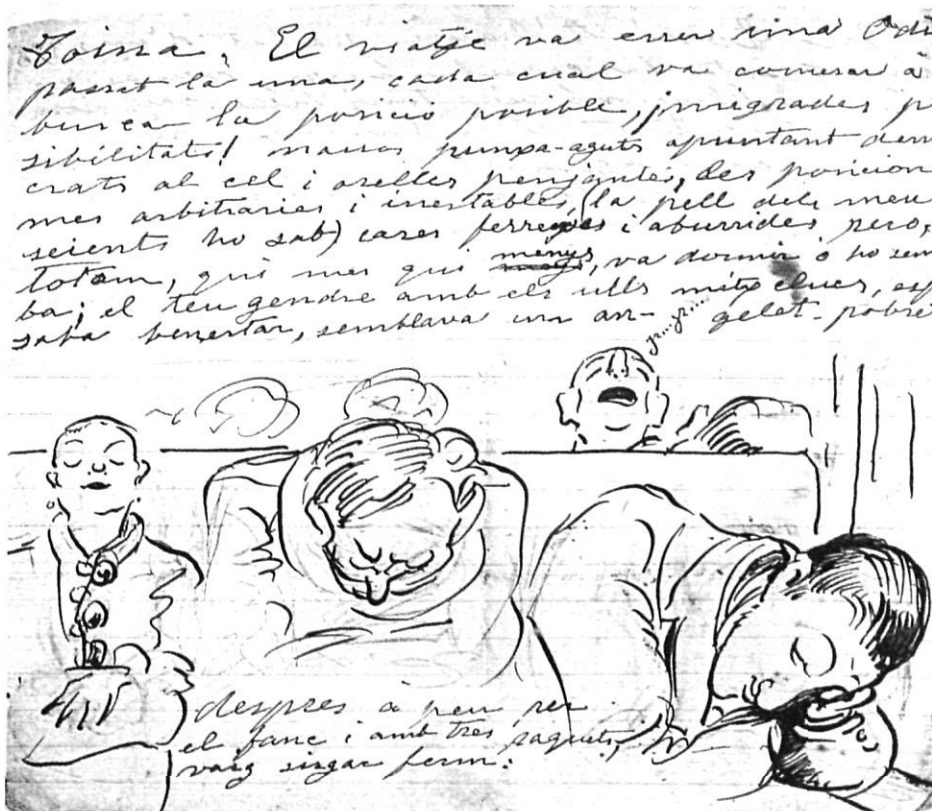 Toina, El viatje va esser una Odi
passat la una, cada cual va comensar à
busca la posició posible, ¡migrades p
sibilitats! nassos punxa-aguts apuntant den
crats al cel i orelles penjantes, des posicion
mes arbitraries i inestables, (la pell dels meu
seients ho sab) cares ferreges i aburrides pero,
totom, qui mes qui menys, va dormir ó ho sem
ba; el teu gendre amb els ulls mitx clucs, esp
saba benestar, semblava un an- gelet. pobre
jr...jr....
despres à peu per
el fanc i amb tres saquets,
vaig singar ferm.